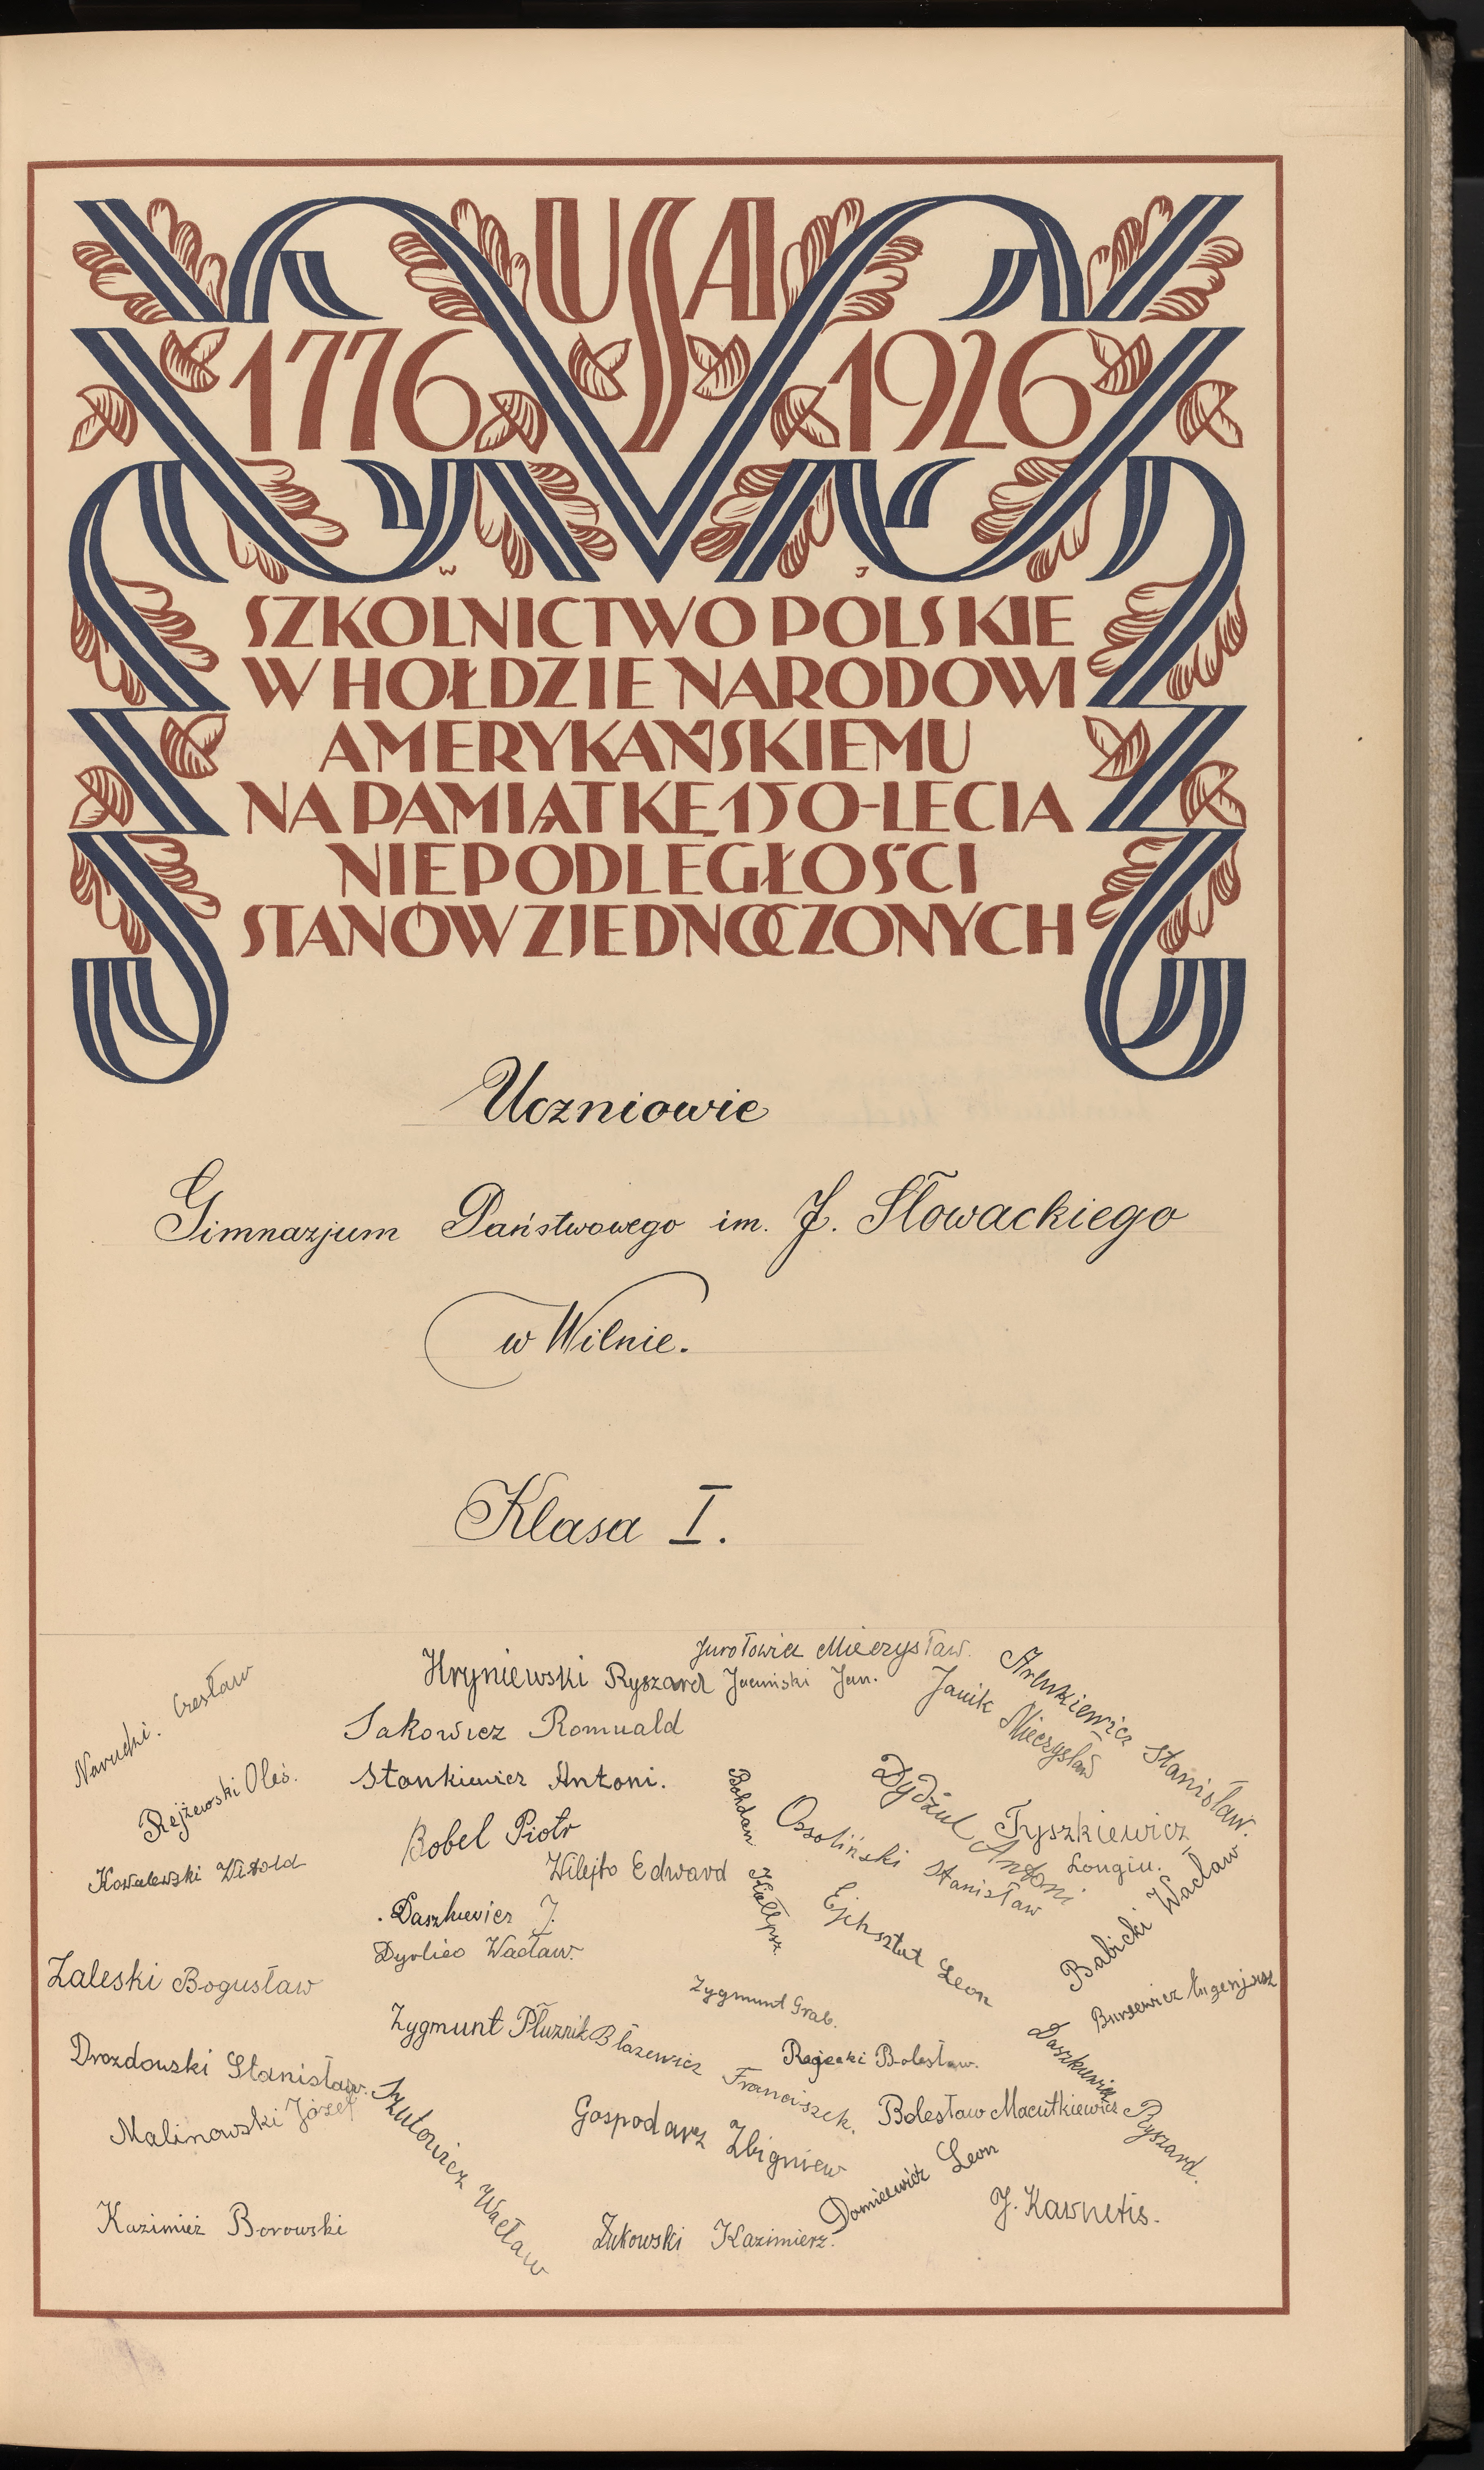 USA
1776 1926
W J
SZKOLNICTWO POLSKIE
W HOŁDZIE NARODOWI
AMERYKAŃSKIEMU
NA PAMIĄTKĘ 150-LECIA
NIEPODLEGŁOŚCI
STANÓW ZJEDNOCZONYCH
Uczniowie
Gimnazjum Państwowego im. J. Słowackiego
w Wilnie.
Klasa I.
Czesław
Rejżewski Oleś.
Kowalewski Witold
Zaleski Bogusław
Drozdowski Stanisław.
Malinowski Józef
Kazimież Borowski
Hryniewski Ryszard
Sakowicz Romuald
Stankiewicz Antoni.
Bobel Piotr
Wilejto Edward
Daszkiewicz J.
Wacław.
Zygmunt Płuznik
Błażewicz Franciszek.
Szutowicz Wacław
Mieczysław.
Jacuński Jan.
Janik Mieczysław
Stanisław.
Bohdan
Ossoliński Stanisław
Dydziul Antoni
Tyszkiewicz
Longin.
Ejchsztat Leon
Babicki Wacław
Eugenjusz
Zygmunt Grab.
Bolesław.
Daszkiewicz Ryszard.
Bolesław Macutkiewicz
Gospodarz Zbigniew
Leon
Żukowski Kazimierz.
J. Karnetis.